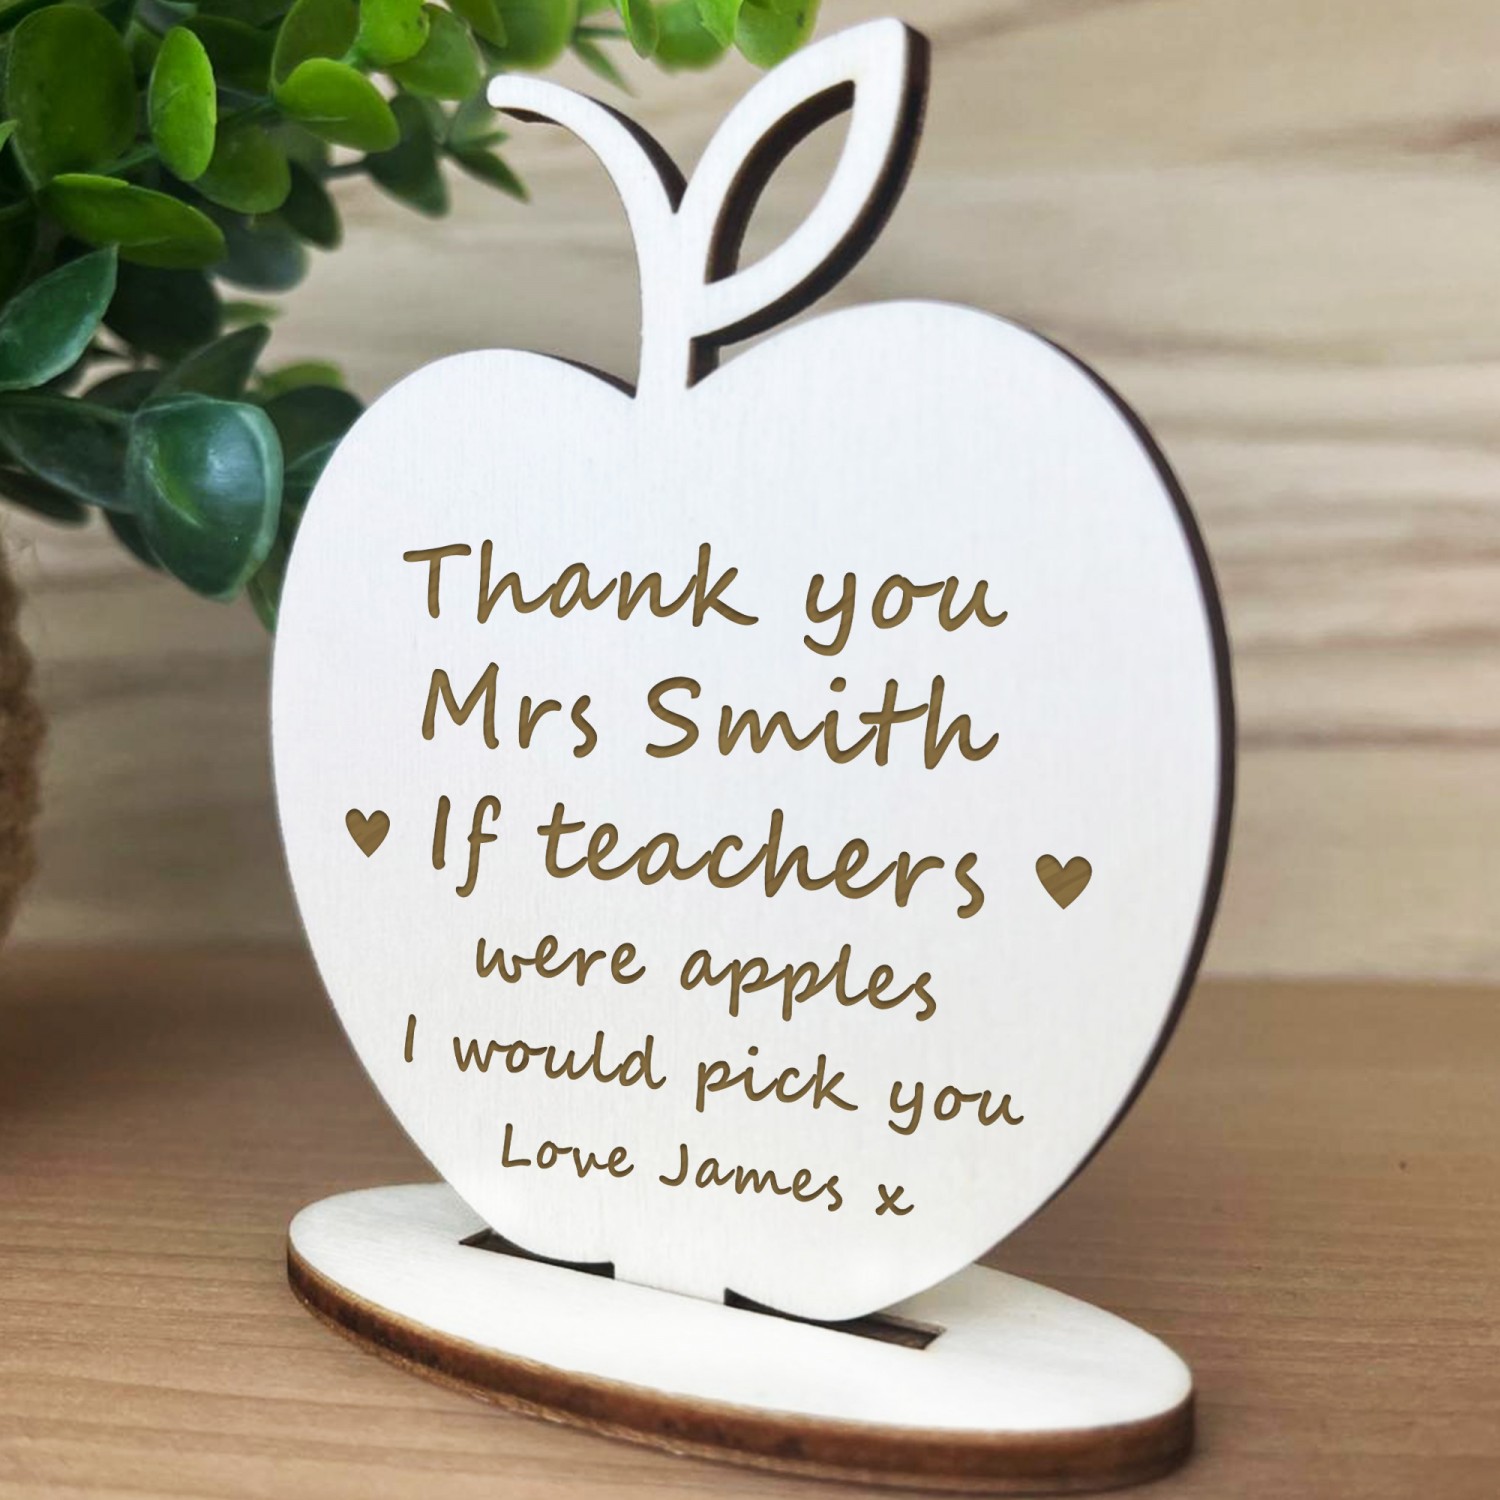 Thank you
Mrs Smith
♥ If teachers ♥
were apples
I would pick you
Love James x